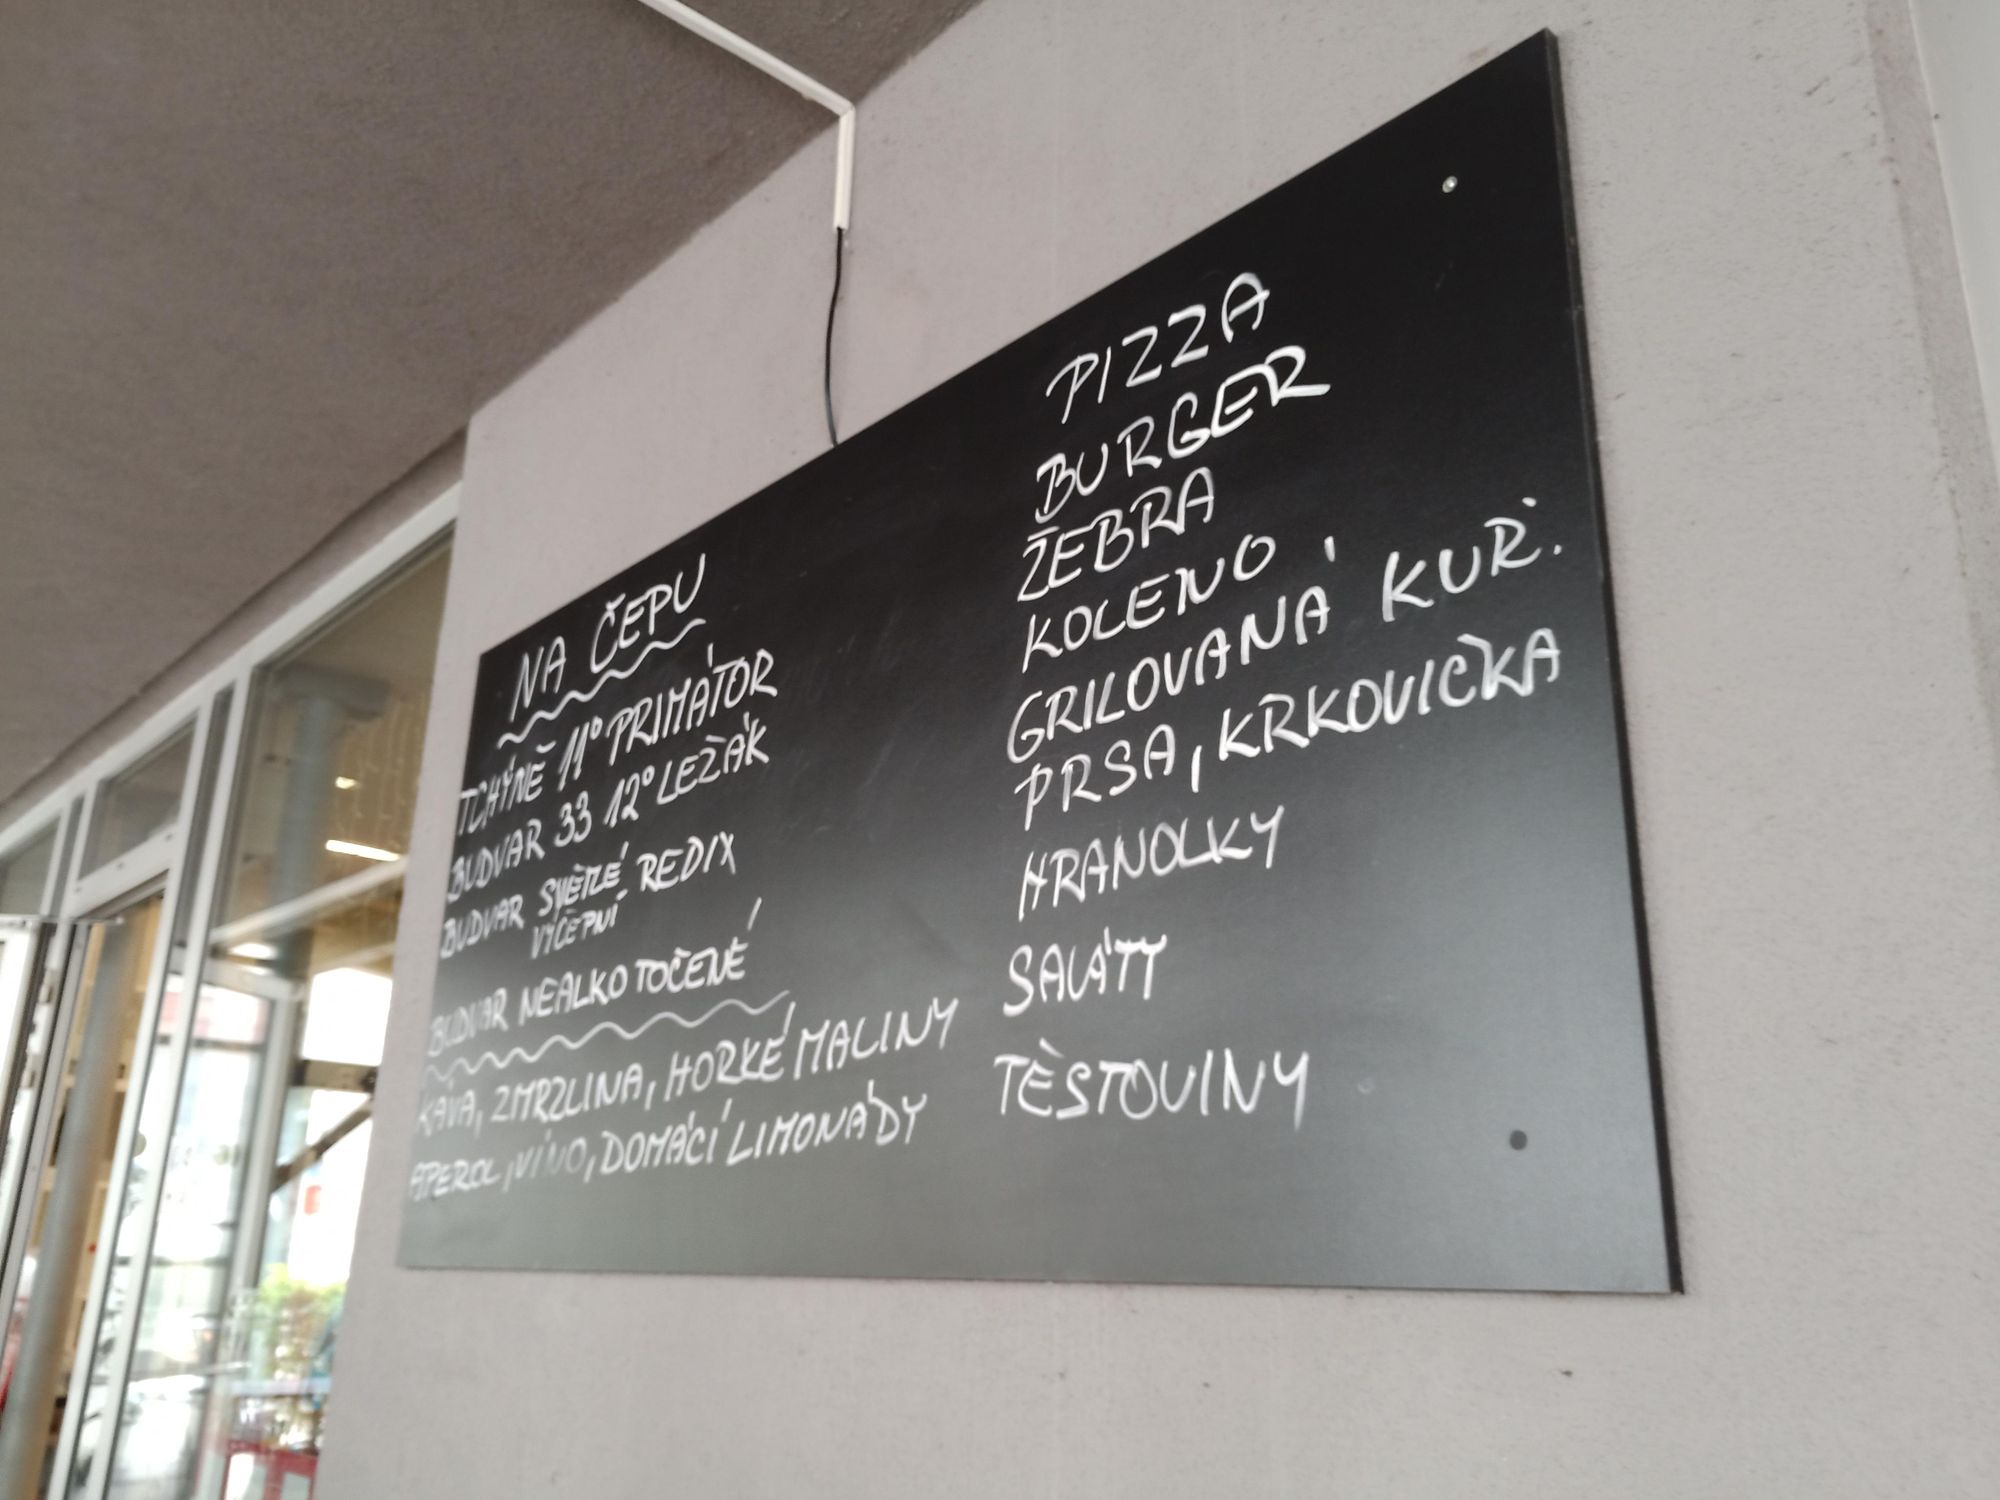 NA ČEPU
TCHÝNĚ 11° PRIMÁTOR
BUDVAR 33 12° LEŽÁK
BUDVAR SVĚTLÉ REDIX
VÝČEPNÍ
BUDVAR NEALKO TOČENÉ
KÁVA, ZMRZLINA, HORKÉ MALINY
APEROL, VÍNO, DOMÁCÍ LIMONÁDY
PIZZA
BURGER
ŽEBRA
KOLENO
GRILOVANÁ KUŘ.
PRSA, KRKOVIČKA
HRANOLKY
SALÁTY
TĚSTOVINY